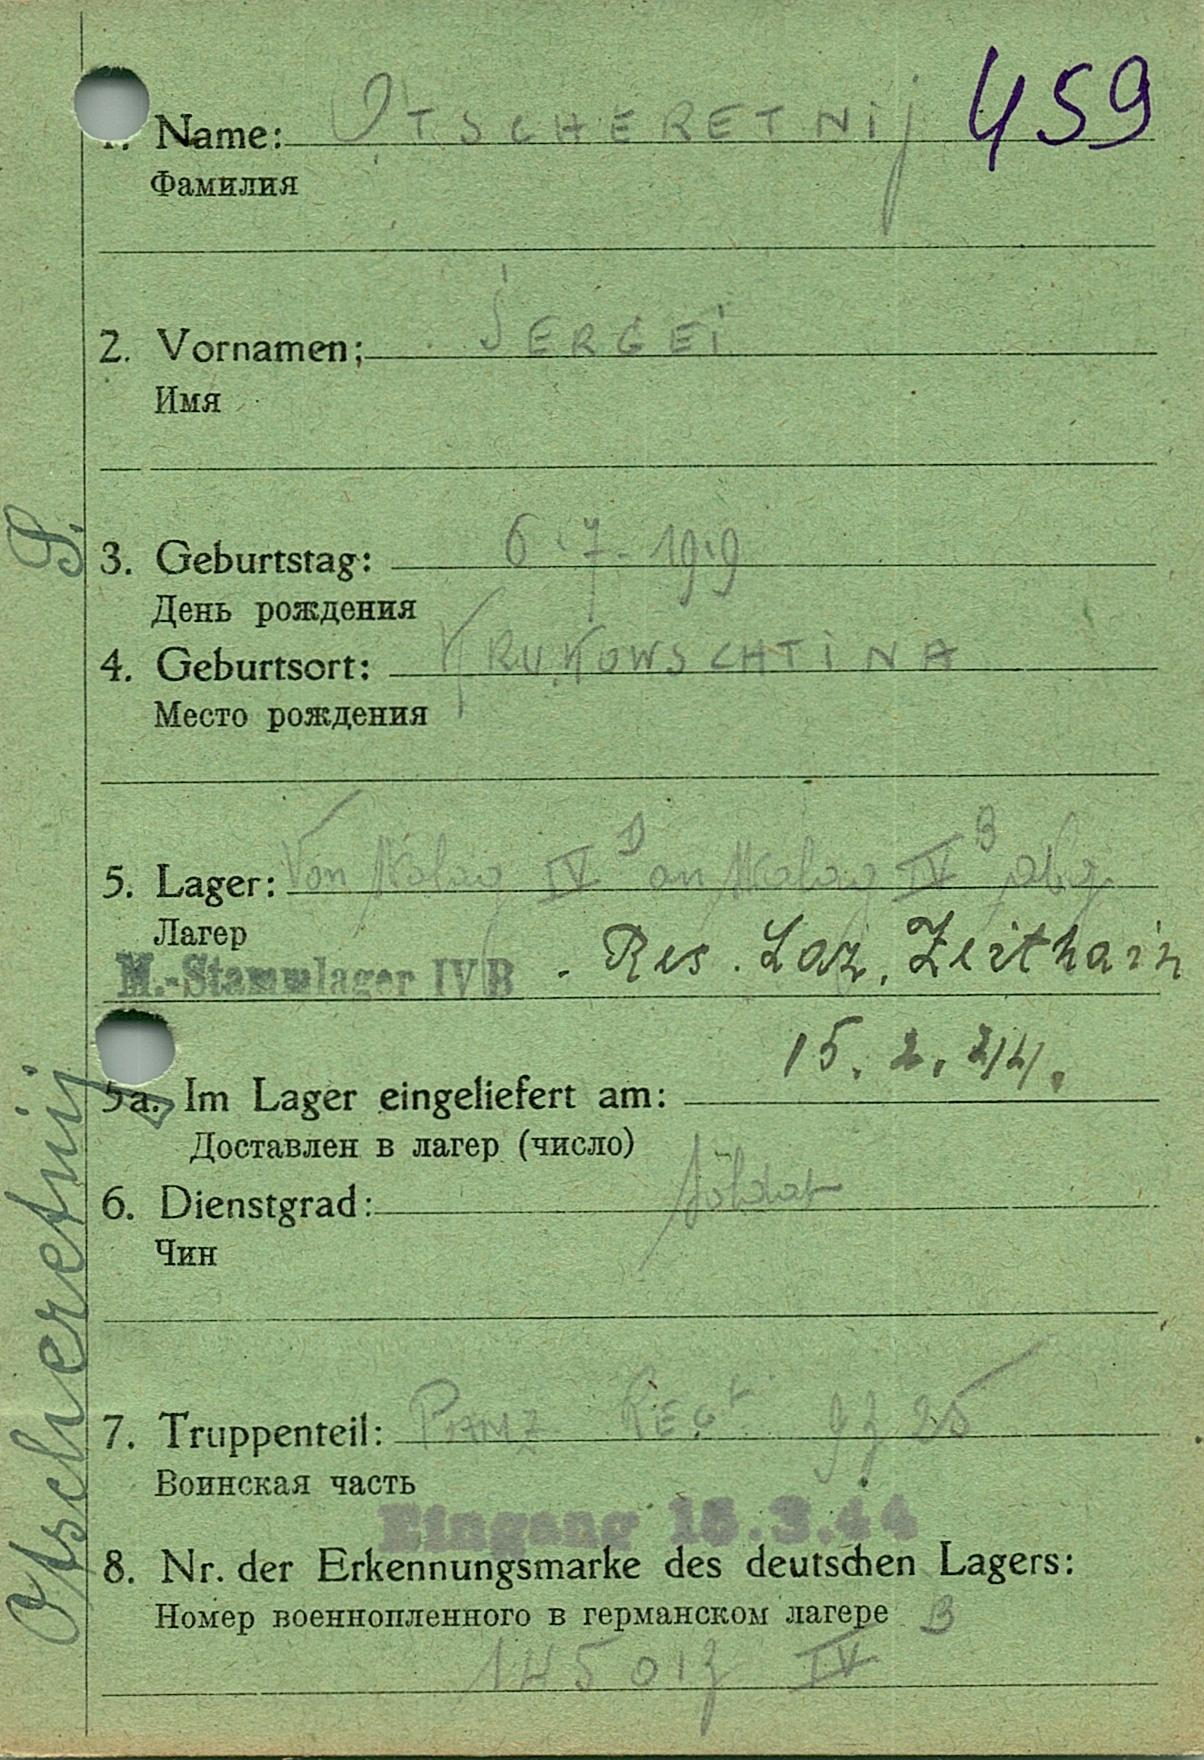 459
1. Name: OTSCHERETNij
Фамилия
2. Vornamen: SERGEi
Имя
3. Geburtstag: 6.7.1919
День рождения
4. Geburtsort: KRUKOWSCHTiNA
Место рождения
5. Lager: Von Stalag IV D an Stalag IV B abg.
Лагер
M.-Stammlager IV B . Res. Laz. Zeithain
15. 2. 44.
5a. Im Lager eingeliefert am:
Доставлен в лагер (число)
6. Dienstgrad: Soldat
Чин
7. Truppenteil: PANZ REGt
Воинская часть
Eingang 15.3.44
8. Nr. der Erkennungsmarke des deutschen Lagers:
Номер военнопленного в германском лагере
IV B
Otscheretnij S.